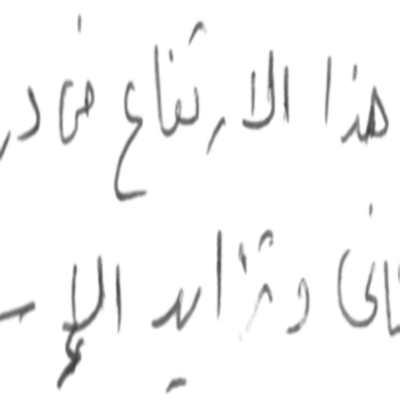 هذا الارتفاع في در
ثاني وتزايد الإ